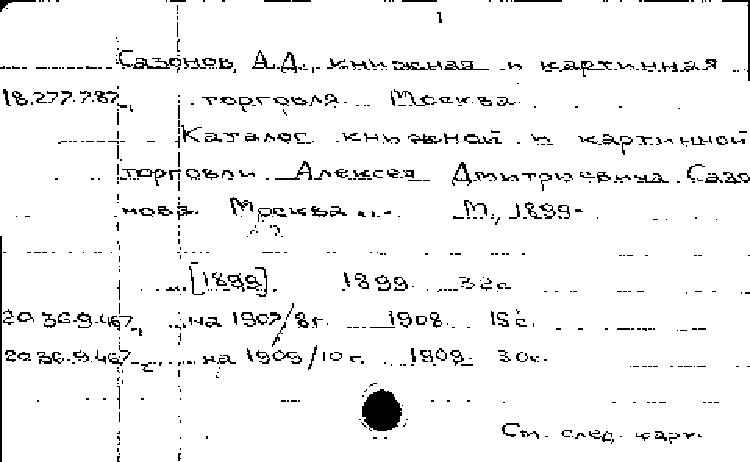 1
Сазонов, А.Д., книжная и картинная
18.277.787 торговля. Москва
Каталог книжной и картинной
торговли Алексея Дмитриевича Сазо
нова. Москва ... М., 1899-
[1899]. 1899. 32с
20.36.9.467 на 1907/8г. 1908. 15с.
20.36.9.467 на 1909/10г. 1909. 30с.
См. след. карт.